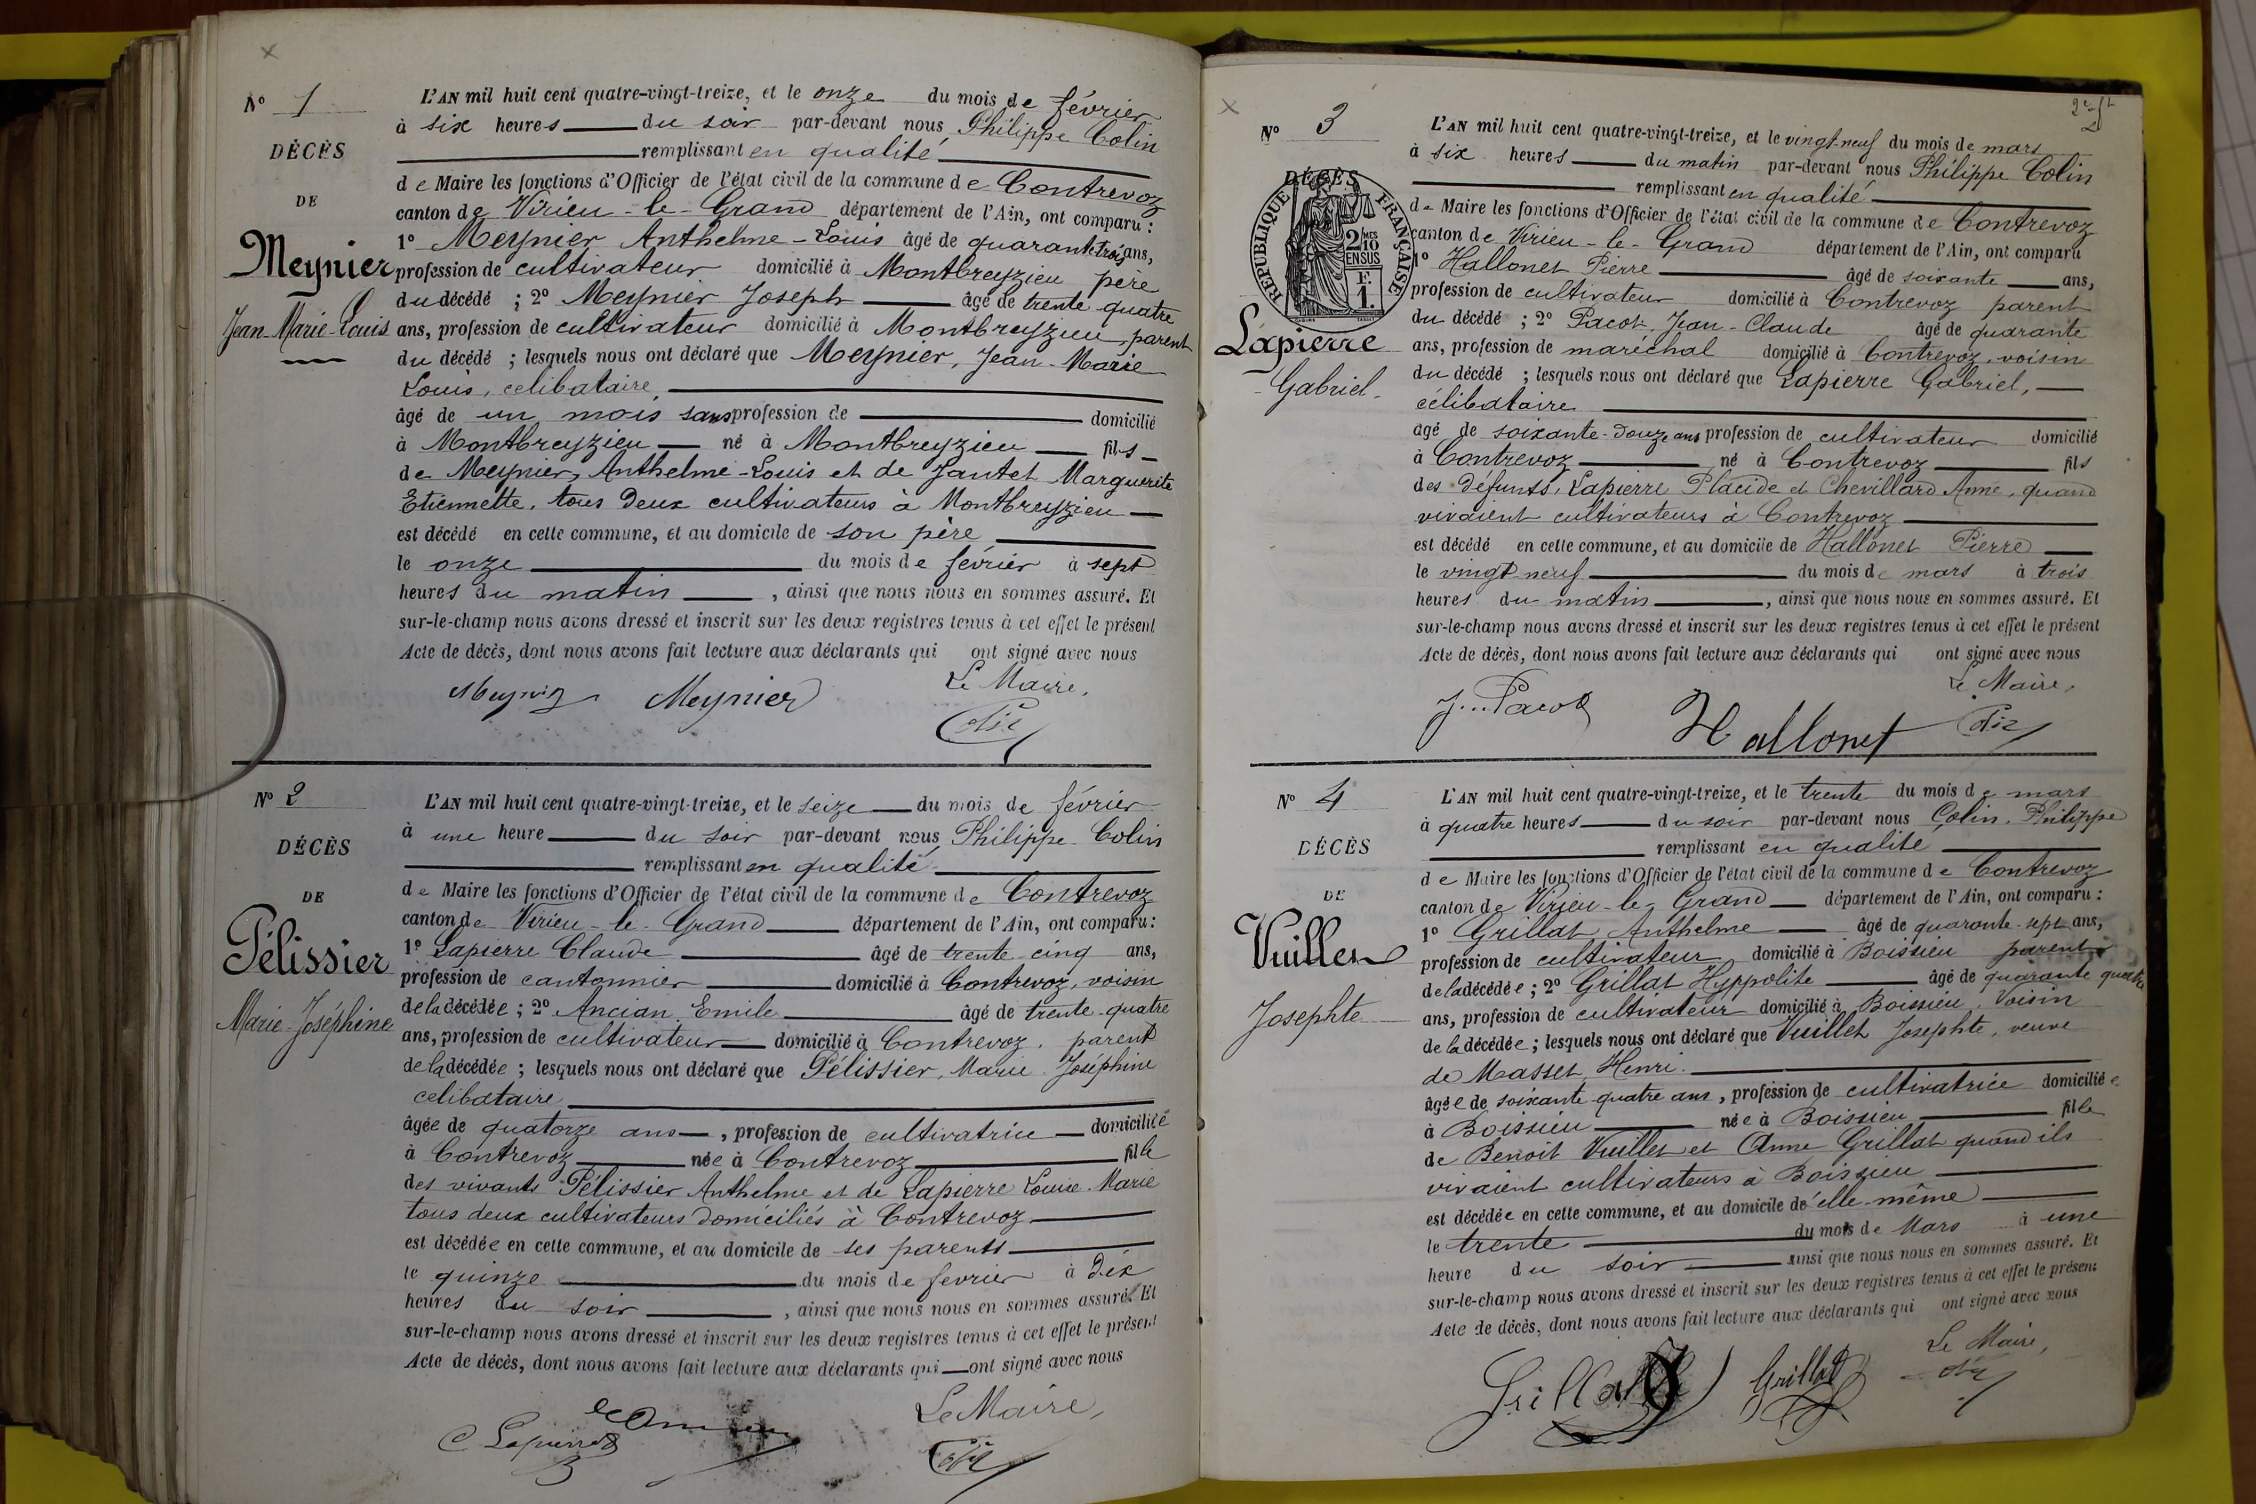 N° 1
DÉCÈS
DE
Meynier
Jean-Marie-Louis
L'AN mil huit cent quatre-vingt-treize, et le onze du mois de février
à six heures du soir par-devant nous Philippe Colin
remplissant en qualité
de Maire les fonctions d'Officier de l'état civil de la commune de Contrevoz
canton de Virieu-le-Grand département de l'Ain, ont comparu :
1° Meynier Anthelme-Louis âgé de quarante-trois ans,
profession de cultivateur domicilié à Montbreyzieu père
du décédé ; 2° Meynier Joseph âgé de trente quatre
ans, profession de cultivateur domicilié à Montbreyzieu, parent
du décédé ; lesquels nous ont déclaré que Meynier, Jean-Marie
Louis, célibataire,
âgé de un mois sans profession de domicilié
à Montbreyzieu né à Montbreyzieu fils
de Meynier, Anthelme-Louis et de Jantet Marguerite
Etiennette, tous deux cultivateurs à Montbreyzieu
est décédé en cette commune, et au domicile de son père
le onze du mois de février à sept
heures du matin , ainsi que nous nous en sommes assuré. Et
sur-le-champ nous avons dressé et inscrit sur les deux registres tenus à cet effet le présent
Acte de décès, dont nous avons fait lecture aux déclarants qui ont signé avec nous
Le Maire,
Meynier Meynier
N° 2
DÉCÈS
DE
Pélissier
Marie-Joséphine
L'AN mil huit cent quatre-vingt-treize, et le seize du mois de février
à une heure du soir par-devant nous Philippe Colin
remplissant en qualité
de Maire les fonctions d'Officier de l'état civil de la commune de Contrevoz
canton de Virieu-le-Grand département de l'Ain, ont comparu :
1° Lapierre Claude âgé de trente cinq ans,
profession de cantonnier domicilié à Contrevoz, voisin
de la décédée ; 2° Ancian Emile âgé de trente-quatre
ans, profession de cultivateur domicilié à Contrevoz, parent
de la décédée ; lesquels nous ont déclaré que Pélissier, Marie Joséphine
célibataire
âgée de quatorze ans , profession de cultivatrice domiciliée
à Contrevoz née à Contrevoz fille
des vivants Pélissier Anthelme et de Lapierre Louise Marie
tous deux cultivateurs domiciliés à Contrevoz
est décédée en cette commune, et au domicile de ses parents
le quinze du mois de février à dix
heures du soir , ainsi que nous nous en sommes assuré. Et
sur-le-champ nous avons dressé et inscrit sur les deux registres tenus à cet effet le présent
Acte de décès, dont nous avons fait lecture aux déclarants qui ont signé avec nous
Le Maire,
C Lapierre
N° 3
DÉCÈS
RÉPUBLIQUE FRANÇAISE
2/10 EN SUS
F. 1.
Lapierre
Gabriel
L'AN mil huit cent quatre-vingt-treize, et le vingt-neuf du mois de mars
à six heures du matin par-devant nous Philippe Colin
remplissant en qualité
de Maire les fonctions d'Officier de l'état civil de la commune de Contrevoz
canton de Virieu-le-Grand département de l'Ain, ont comparu
1° Hallonet Pierre âgé de soixante ans,
profession de cultivateur domicilié à Contrevoz parent
du décédé ; 2° Pacot, Jean-Claude âgé de quarante
ans, profession de maréchal domicilié à Contrevoz, voisin
du décédé ; lesquels nous ont déclaré que Lapierre Gabriel,
célibataire
âgé de soixante-douze ans profession de cultivateur domicilié
à Contrevoz né à Contrevoz fils
des défunts, Lapierre Placide et Chevillard Anne, quand
vivaient cultivateurs à Contrevoz
est décédé en cette commune, et au domicile de Hallonet Pierre
le vingt neuf du mois de mars à trois
heures du matin , ainsi que nous nous en sommes assuré. Et
sur-le-champ nous avons dressé et inscrit sur les deux registres tenus à cet effet le présent
Acte de décès, dont nous avons fait lecture aux déclarants qui ont signé avec nous
Le Maire,
J. Pacot Hallonet
N° 4
DÉCÈS
DE
Vuillet
Josephte
L'AN mil huit cent quatre-vingt-treize, et le trente du mois de mars
à quatre heures du soir par-devant nous Colin, Philippe
remplissant en qualité
de Maire les fonctions d'Officier de l'état civil de la commune de Contrevoz
canton de Virieu-le-Grand département de l'Ain, ont comparu :
1° Grillat Anthelme âgé de quarante-sept ans,
profession de cultivateur domicilié à Boissieu parent
de la décédée ; 2° Grillat Hyppolite âgé de quarante quatre
ans, profession de cultivateur domicilié à Boissieu, voisin
de la décédée ; lesquels nous ont déclaré que Vuillet Josephte, veuve
de Masset Henri.
âgée de soixante quatre ans , profession de cultivatrice domiciliée
à Boissieu née à Boissieu fille
de Benoit Vuillet et Anne Grillat quand ils
vivaient cultivateurs à Boissieu
est décédée en cette commune, et au domicile de elle-même
le trente du mois de Mars à une
heure du soir ainsi que nous nous en sommes assuré. Et
sur-le-champ nous avons dressé et inscrit sur les deux registres tenus à cet effet le présent
Acte de décès, dont nous avons fait lecture aux déclarants qui ont signé avec nous
Le Maire,
Grillat Grillat